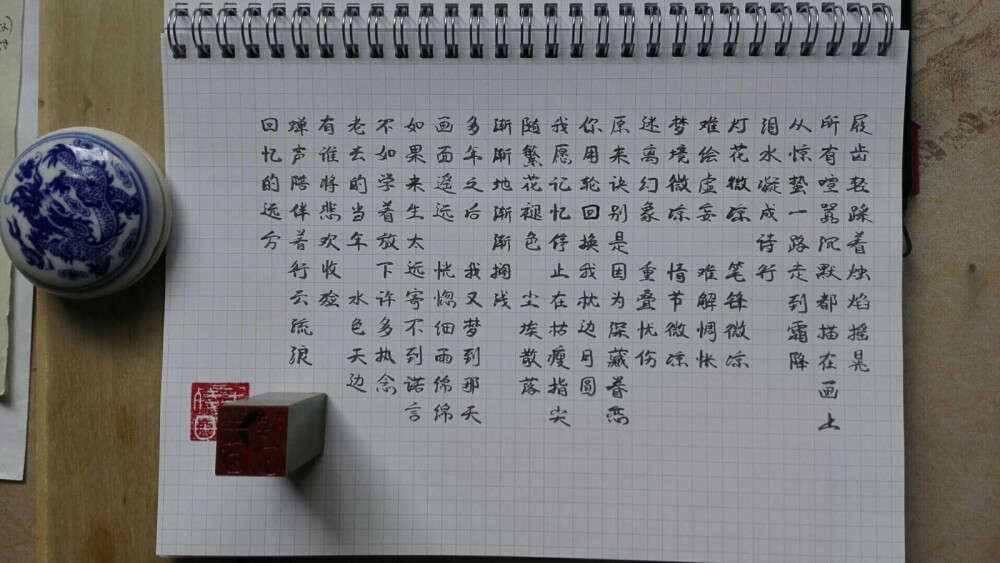 屐齿轻踩着烛焰摇晃
所有喧嚣沉默都描在画上
从惊蛰一路走到霜降
泪水凝成诗行
灯花微凉 笔锋微凉
难绘虚妄 难解惆怅
梦境微凉 情节微凉
迷离幻象 重叠忧伤
原来诀别是因为深藏眷恋
你用轮回换我枕边月圆
我愿记忆停止在枯瘦指尖
随繁花褪色 尘埃散落
渐渐地渐渐搁浅
多年之后 我又梦到那天
画面遥远 恍惚细雨绵绵
如果来生太远寄不到诺言
不如学着放下许多执念
老去的当年 水色天边
有谁将悲欢收殓
蝉声陪伴着行云流浪
回忆的远方